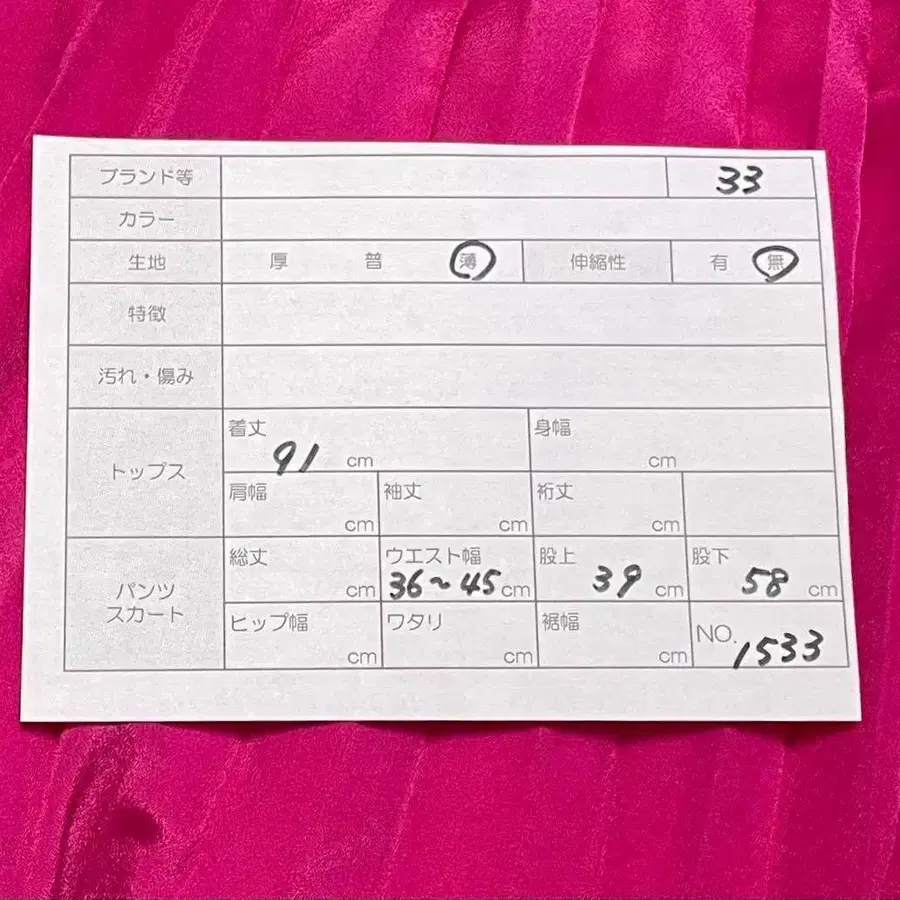 ブランド等 33
カラー
生地 厚 普 薄 伸縮性 有 無
特徴
汚れ・傷み
トップス
着丈 91 cm 身幅 cm
肩幅 cm 袖丈 cm 裄丈 cm
パンツ
スカート
総丈 cm ウエスト幅 36~45 cm 股上 39 cm 股下 58 cm
ヒップ幅 cm ワタリ cm 裾幅 cm NO. 1533